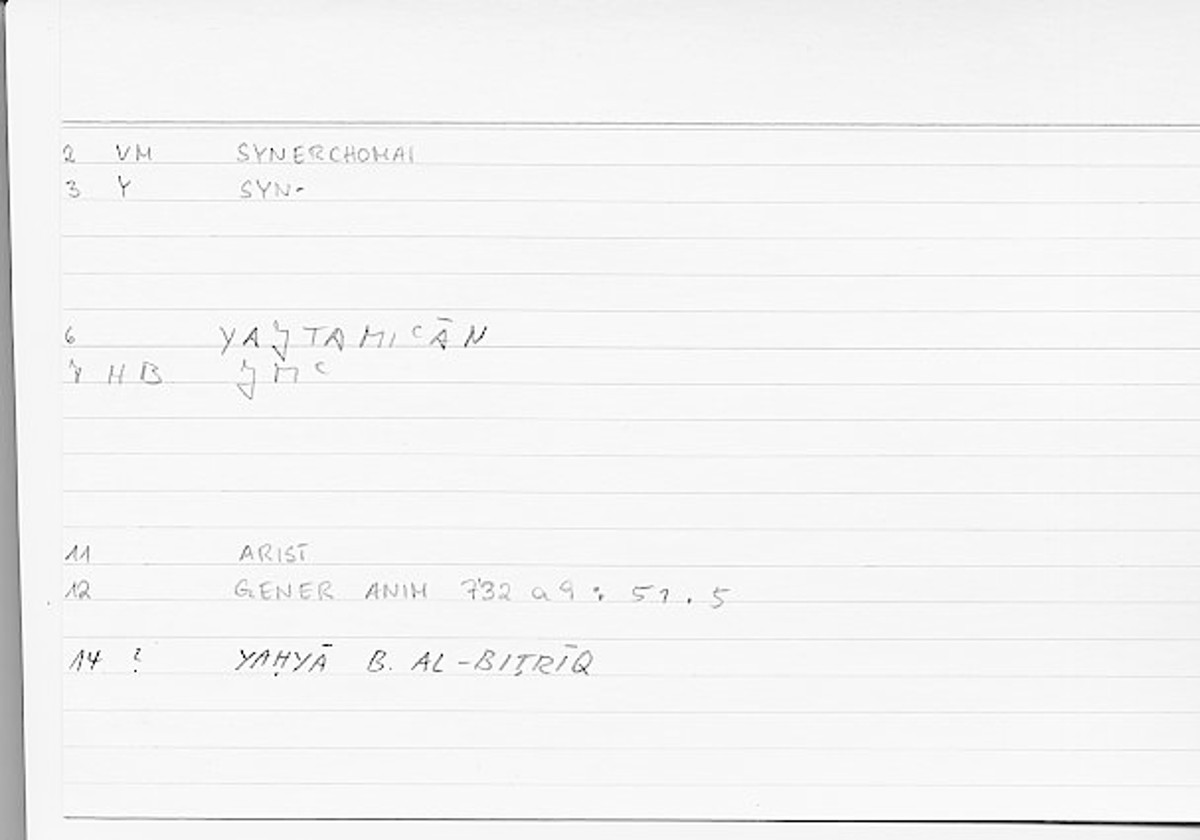 2 VM SYNERCHOMAI
3 Y SYN-
6 YAJTAMIʿĀN
7 HB JMʿ
11 ARIST
12 GENER ANIM 732 a 9 : 51.5
14 ? YAḤYĀ B. AL-BIṬRĪQ